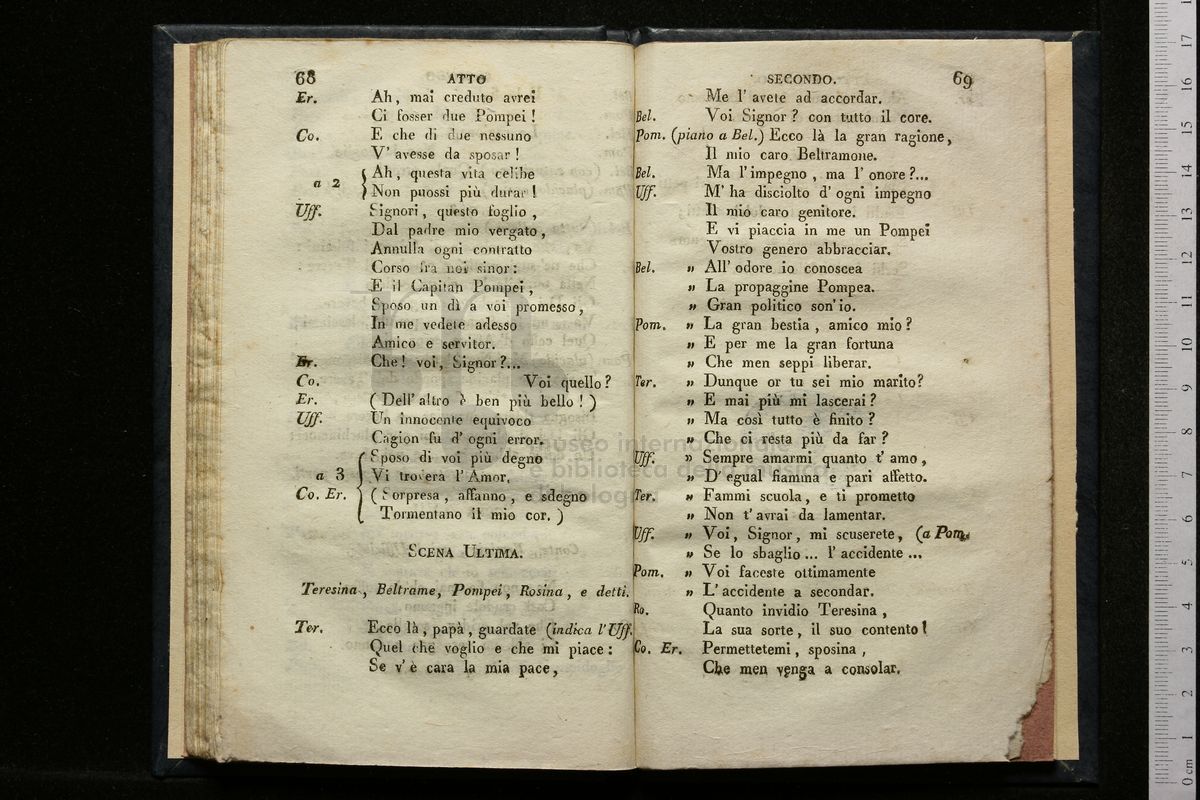 68 ATTO
Er. Ah, mai creduto avrei
Ci fosser due Pompei!
Co. E che di due nessuno
V' avesse da sposar!
a 2 { Ah, questa vita celibe
Non puossi più durar!
Uff. Signori, questo foglio,
Dal padre mio vergato,
Annulla ogni contratto
Corso fra noi sinor:
E il Capitan Pompei,
Sposo un dì a voi promesso,
In me vedete adesso
Amico e servitor.
Er. Che! voi, Signor?...
Co. Voi quello?
Er. (Dell' altro è ben più bello!)
Uff. Un innocente equivoco
Cagion fu d' ogni error.
Sposo di voi più degno
a 3 { Vi troverà l' Amor.
Co. Er. (Sorpresa, affanno, e sdegno
Tormentano il mio cor.)
SCENA ULTIMA.
Teresina, Beltrame, Pompei, Rosina, e detti.
Ter. Ecco là, papà, guardate (indica l'Uff.
Quel che voglio e che mi piace:
Se v' è cara la mia pace,
SECONDO. 69
Me l' avete ad accordar.
Bel. Voi Signor? con tutto il core.
Pom. (piano a Bel.) Ecco là la gran ragione,
Il mio caro Beltramone.
Bel. Ma l' impegno, ma l' onore?...
Uff. M' ha disciolto d' ogni impegno
Il mio caro genitore.
E vi piaccia in me un Pompei
Vostro genero abbracciar.
Bel. „ All' odore io conoscea
„ La propaggine Pompea.
„ Gran politico son' io.
Pom. „ La gran bestia, amico mio?
„ E per me la gran fortuna
„ Che men seppi liberar.
Ter. „ Dunque or tu sei mio marito?
„ E mai più mi lascerai?
„ Ma così tutto è finito?
„ Che ci resta più da far?
Uff. „ Sempre amarmi quanto t' amo,
„ D' egual fiamma e pari affetto.
Ter. „ Fammi scuola, e ti prometto
„ Non t' avrai da lamentar.
Uff. „ Voi, Signor, mi scuserete, (a Pom.
„ Se lo sbaglio... l' accidente...
Pom. „ Voi faceste ottimamente
„ L' accidente a secondar.
Ro. Quanto invidio Teresina,
La sua sorte, il suo contento!
Co. Er. Permettetemi, sposina,
Che men venga a consolar.
museo internazionale
e biblioteca della musica